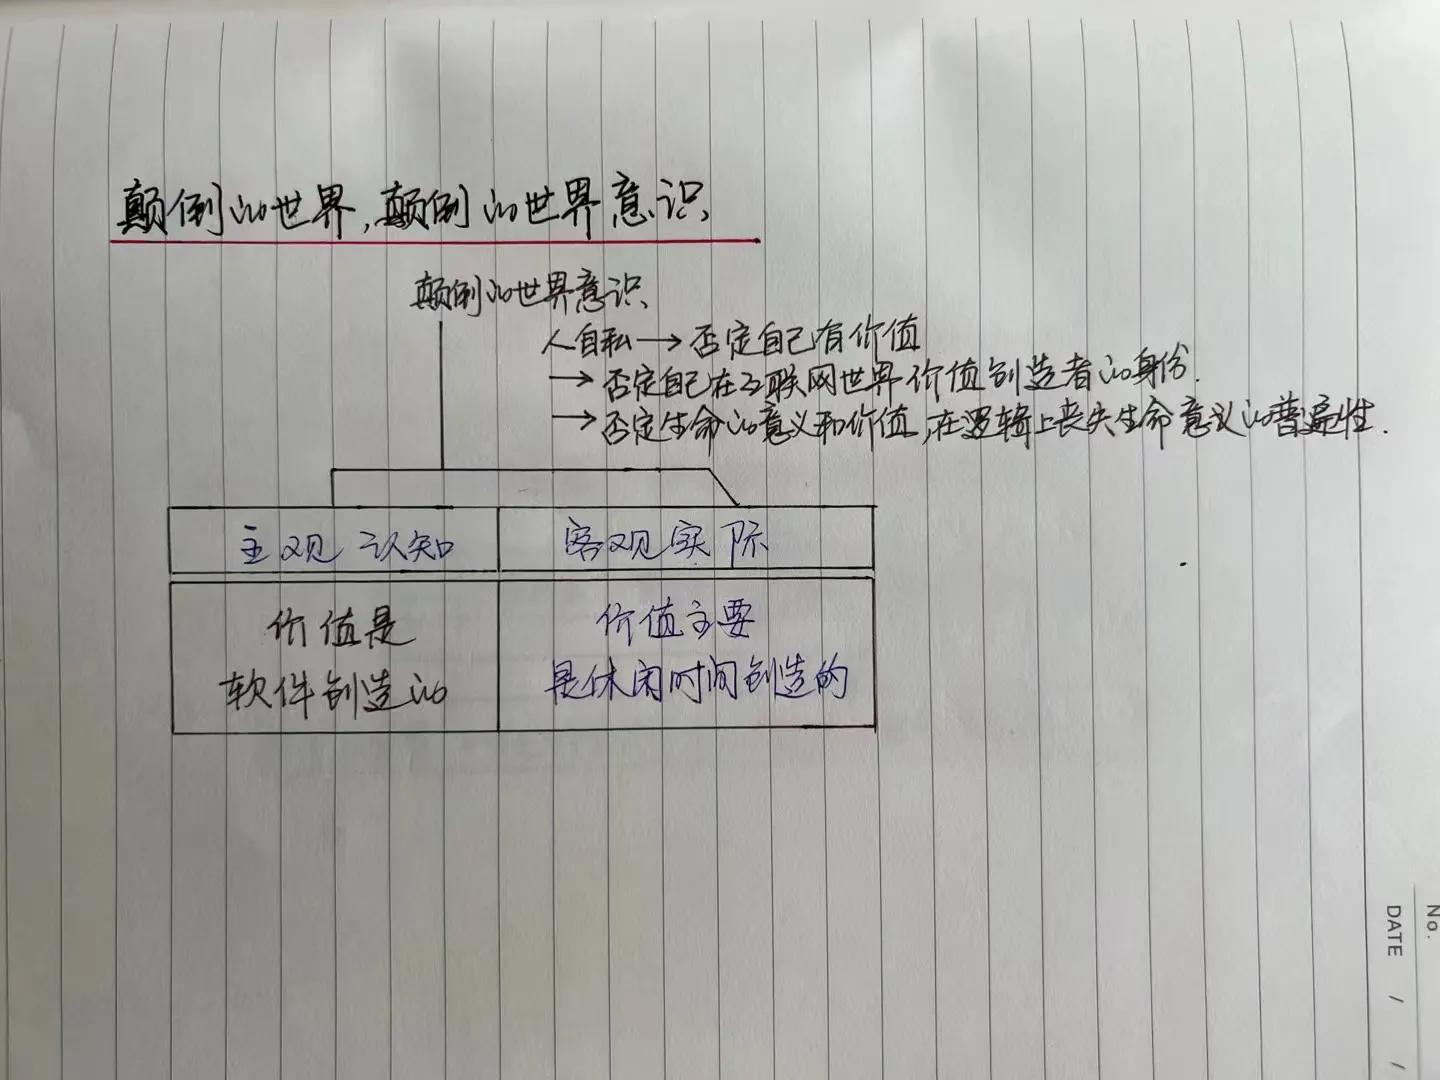 颠倒的世界,颠倒的世界意识
颠倒的世界意识
人自私→否定自己有价值
→否定自己在互联网世界价值创造者的身份.
→否定生命的意义和价值,在逻辑上丧失生命意义的普遍性.
主观认知
客观实际
价值是
软件创造的
价值主要
是休闲时间创造的
No.
DATE / /